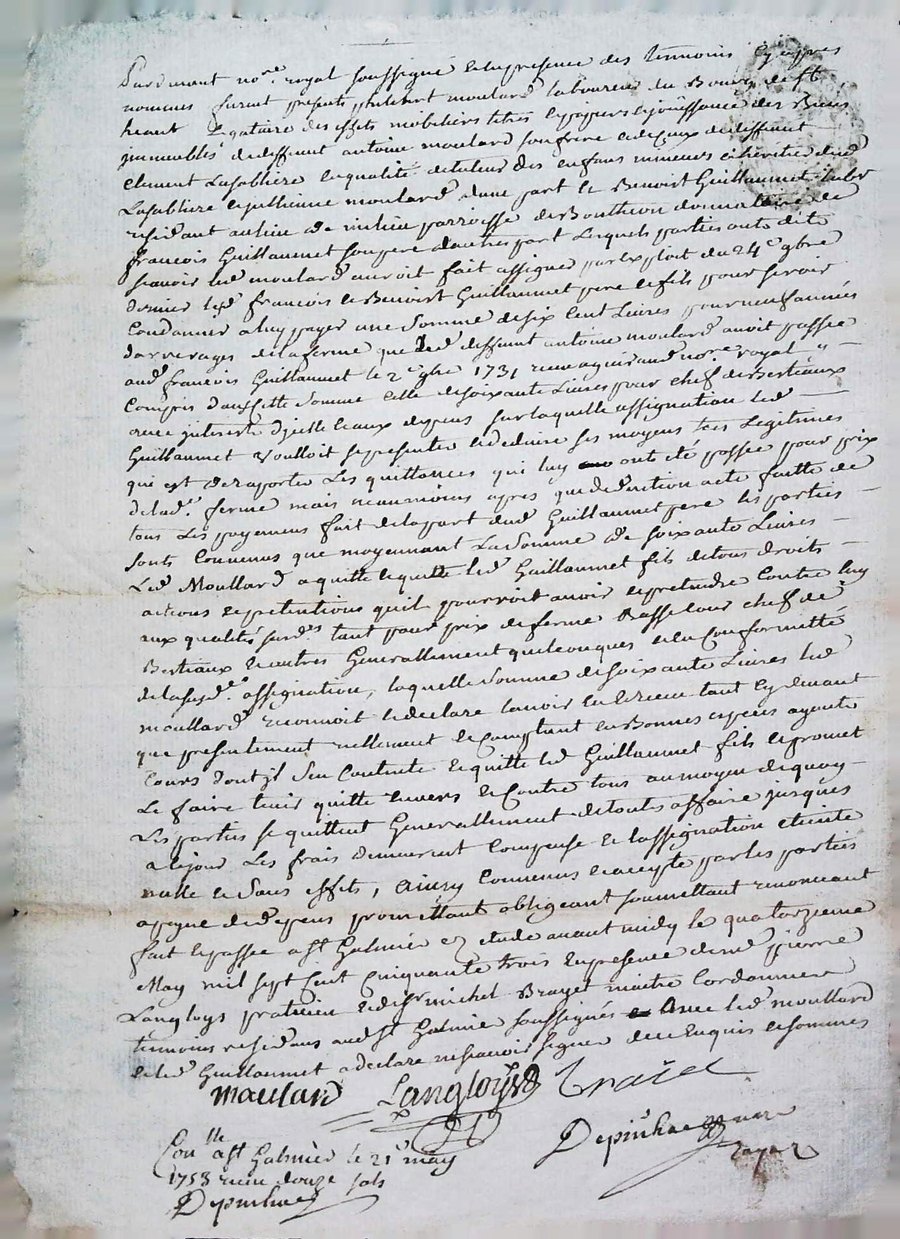 Pardevant no.re royal soussigné et en presence des temoins cy apres
nommes furent presents philibert moulard laboureur du Bourg de St
heant legataire des effets mobiliers titres et papiers et jouissance des Biens
immeubles de deffunt antoine moulard son frere et de ceux de deffunt
Clement Lasabliere et qualité de tuteur des enfans mineurs et heritiers dud
Lasabliere et moulard d'une part et Benoist Guillaumet labr
residant au lieu de parroisse de Boutheon donnataire de
francois Guillaumet son pere d'autre part Lesquels parties ont dit
scavoir led moulard auroit fait assigner par exploit du 24e 9bre
dernier led francois et Benoist Guillaumet pere et fils pour se voir
Condamner a luy payer une somme de six cent Livres pour neuf années
darrerages de la ferme que led deffunt antoine moulard avoit passée
aud francois Guillaumet le 2e 9bre 1731 no.re royal
Compris dans cette somme celle de soixante Livres pour chef de Bestiaux
avec interests d'icelle et aux depens sur laquelle assignation led
Guillaumet voulloit se presenter et deduire ses moyens tres Legitimes
qui est de raporter Les quittances qui luy ont été passée pour prix
de lad.e ferme mais neanmoins apres que deduction a été faitte de
tous Les payemens fait de la part dud Guillaumet pere les parties
sont Convenus que moyennant La somme de soixante Livres
Led Moullard a quitté et quitte led Guillaumet fils de tous droits
actions et pretentions qu'il pourroit avoir et pretendre Contre luy
aux qualités susd.es tant pour prix de ferme chef de
Bestiaux et autres Generallement quelconques et en Conformitté
de la susd.e assignation, laquelle somme de soixante Livres led
moullard reconnoit et declare l'avoir eu et receu tant cy devant
que presentement reellement et Comptant en Bonnes especes ayents
Cours dont il s'en Contente et quitte led Guillaumet fils et promet
Le faire tenir quitte envers et Contre tous au moyen de quoy
Les parties se quittent Generallement de touts affaire jusques
a ce jour Les frais demeurent Compensé et l'assignation eteinte
nulle et sans effets, Ainsy Convenus et accepté par les parties
a peyne de depens promettant obligeant soumettant renonceant
fait et passé a St Galmier etude avant midy le quatorzieme
May mil sept Cent Cinquante trois en presence de me pierre
Langloys praticien et de sr michel Brayet maitre Cordonnier
temoins residans aud St Galmier soussignés Avec led moullard
et led Guillaumet a declaré ne scavoir signer de ce Enquis et sommes
moulard Langloys
Depinhac
Con.lle a St Galmier le 21e may
1753 receu douze sols
Depinhac